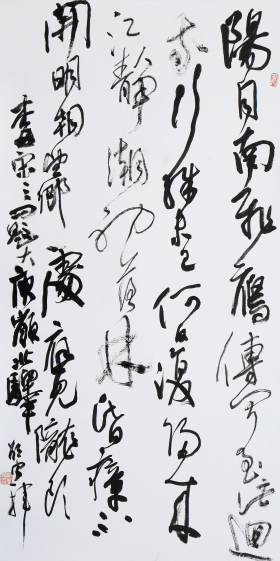 陽月南飛雁傳聞至此迴
我行殊未已何日復歸來
江靜潮初落林昏瘴不
開明朝望鄉處應見隴頭
梅宋之問題大庾嶺北驛